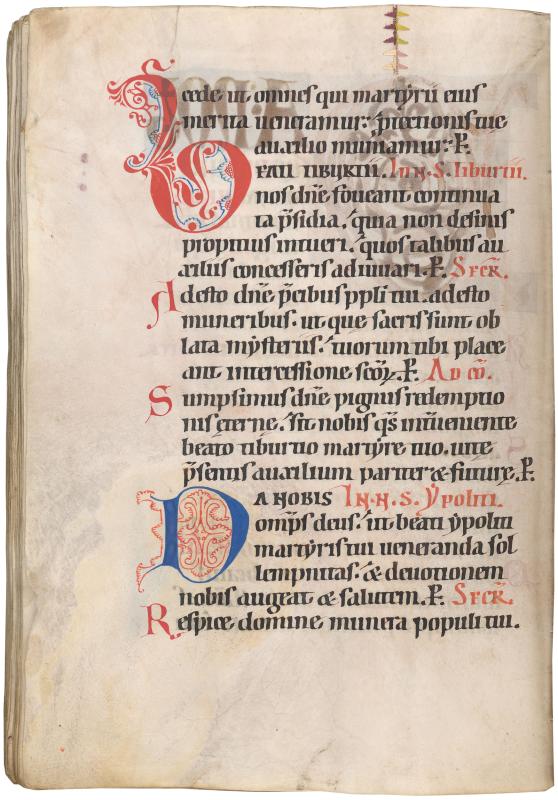 cede ut omnes qui martyrū eius
merita ueneramur. ꝓtectionis tue
auxilio muniamur. P.
BEATI TIBURTII. IN N. S. Tiburtii.
nos dn̄e foueant continua
ta p̄sidia. quia non desinis
propitius intueri. quos talibus au
xiliis concesseris adiuuari. P. SECR̄.
Adesto dn̄e p̄cibus ppl̄i tui. adesto
muneribus. ut que sacris sunt ob
lata mysteriis. tuorum tibi place
ant intercessione sc̄oꝝ. P. AD CŌ.
Sumpsimus dn̄e pignus redemptio
nis ęterne. sit nobis q̄s interueniente
beato tiburtio martyre tuo. uite
p̄sentis auxilium pariter & future. P.
DA NOBIS IN. N. S. Ypoliti.
omp̄s deus. ut beati ypoliti
martyris tui ueneranda sol
lempnitas. & deuotionem
nobis augeat & salutem. P. SECR̄.
Respice domine munera populi tui.